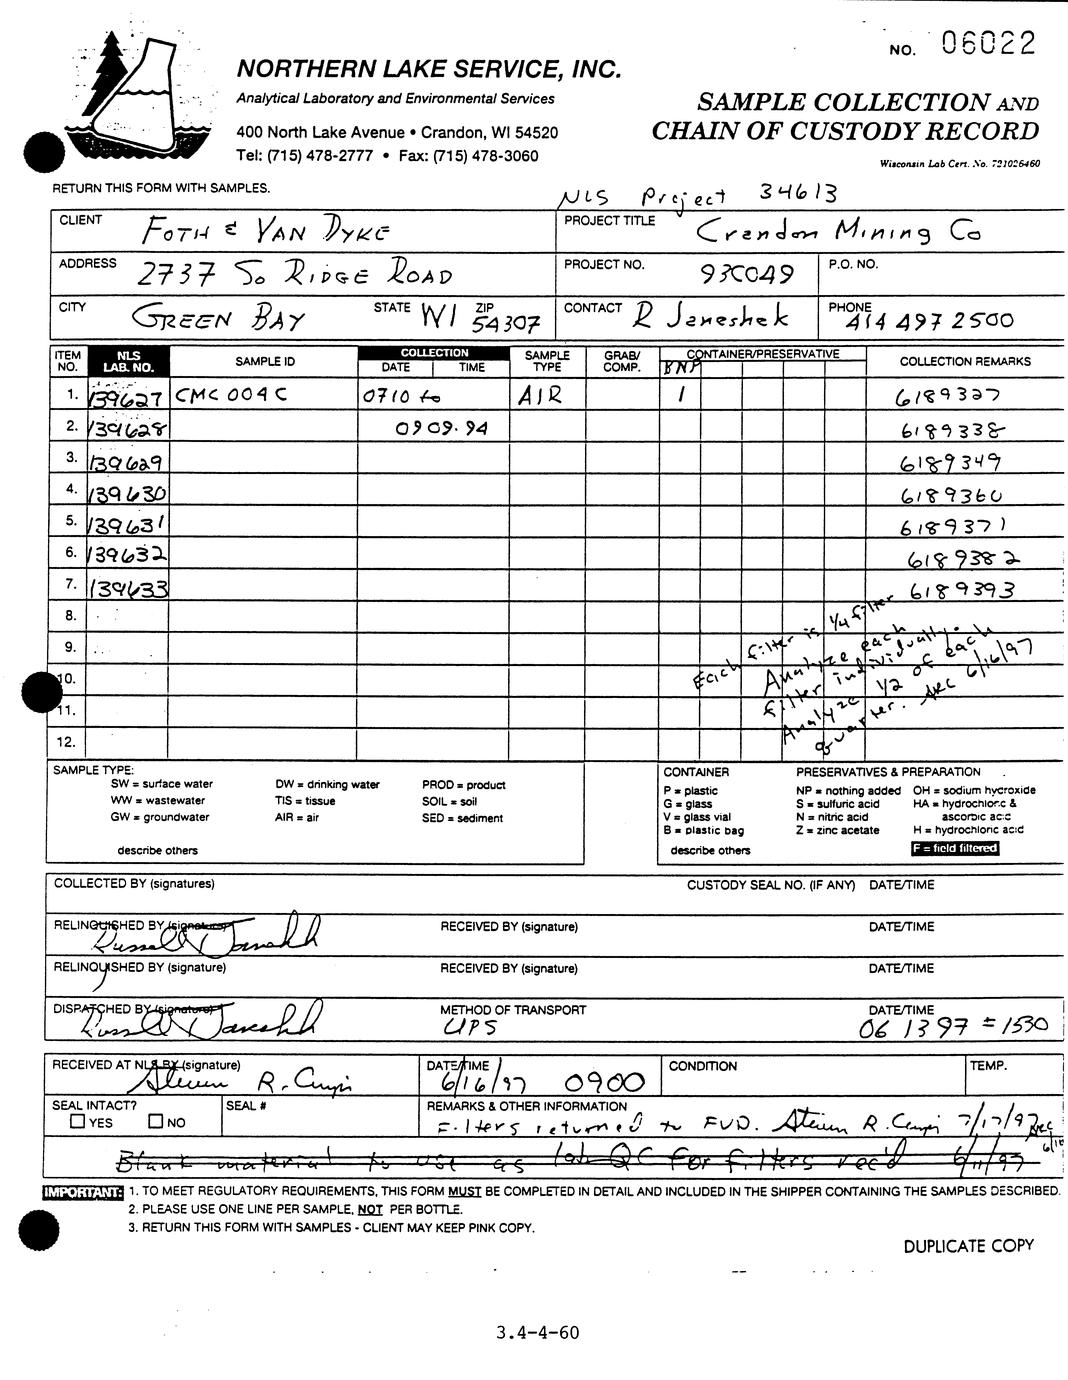 NO. 06022
NORTHERN LAKE SERVICE, INC.
Analytical Laboratory and Environmental Services
400 North Lake Avenue • Crandon, WI 54520
Tel: (715) 478-2777 • Fax: (715) 478-3060
SAMPLE COLLECTION AND
CHAIN OF CUSTODY RECORD
Wisconsin Lab Cert. No. 721026460
RETURN THIS FORM WITH SAMPLES.
NLS Project 34613
CLIENT FOTH & VAN DYKE PROJECT TITLE Crandon Mining Co
ADDRESS 2737 So RIDGE ROAD PROJECT NO. 93C049 P.O. NO.
CITY GREEN BAY STATE WI ZIP 54307 CONTACT R Janeshek PHONE 414 497 2500
ITEM NO. NLS LAB. NO. SAMPLE ID COLLECTION DATE TIME SAMPLE TYPE GRAB/ COMP. CONTAINER/PRESERVATIVE BNP COLLECTION REMARKS
1. 139627 CMC 004C 0710 to AIR 1 6189327
2. 139628 0909.94 6189338
3. 139629 6189349
4. 139630 6189360
5. 139631 6189371
6. 139632 6189382
7. 139633 6189393
8.
9.
10.
11.
12.
Each filter is 1/4 filter
Analyze each
filter individually.
Analyze 1/2 of each
quarter. SRC 6/16/97
SAMPLE TYPE:
SW = surface water DW = drinking water PROD = product
WW = wastewater TIS = tissue SOIL = soil
GW = groundwater AIR = air SED = sediment
describe others
CONTAINER PRESERVATIVES & PREPARATION
P = plastic NP = nothing added OH = sodium hydroxide
G = glass S = sulfuric acid HA = hydrochloric &
V = glass vial N = nitric acid ascorbic acid
B = plastic bag Z = zinc acetate H = hydrochloric acid
describe others F = field filtered
COLLECTED BY (signatures) CUSTODY SEAL NO. (IF ANY) DATE/TIME
RELINQUISHED BY (signature) RECEIVED BY (signature) DATE/TIME
RELINQUISHED BY (signature) RECEIVED BY (signature) DATE/TIME
DISPATCHED BY (signature) METHOD OF TRANSPORT UPS DATE/TIME 06 13 97 = 1530
RECEIVED AT NLS BY (signature) DATE/TIME 6/16/97 0900 CONDITION TEMP.
SEAL INTACT? YES NO SEAL # REMARKS & OTHER INFORMATION
Filters returned to FVD. 7/17/97
Blank material to use as lab QC for filters rec'd 6/11/97
IMPORTANT: 1. TO MEET REGULATORY REQUIREMENTS, THIS FORM MUST BE COMPLETED IN DETAIL AND INCLUDED IN THE SHIPPER CONTAINING THE SAMPLES DESCRIBED.
2. PLEASE USE ONE LINE PER SAMPLE, NOT PER BOTTLE.
3. RETURN THIS FORM WITH SAMPLES - CLIENT MAY KEEP PINK COPY.
DUPLICATE COPY
3.4-4-60